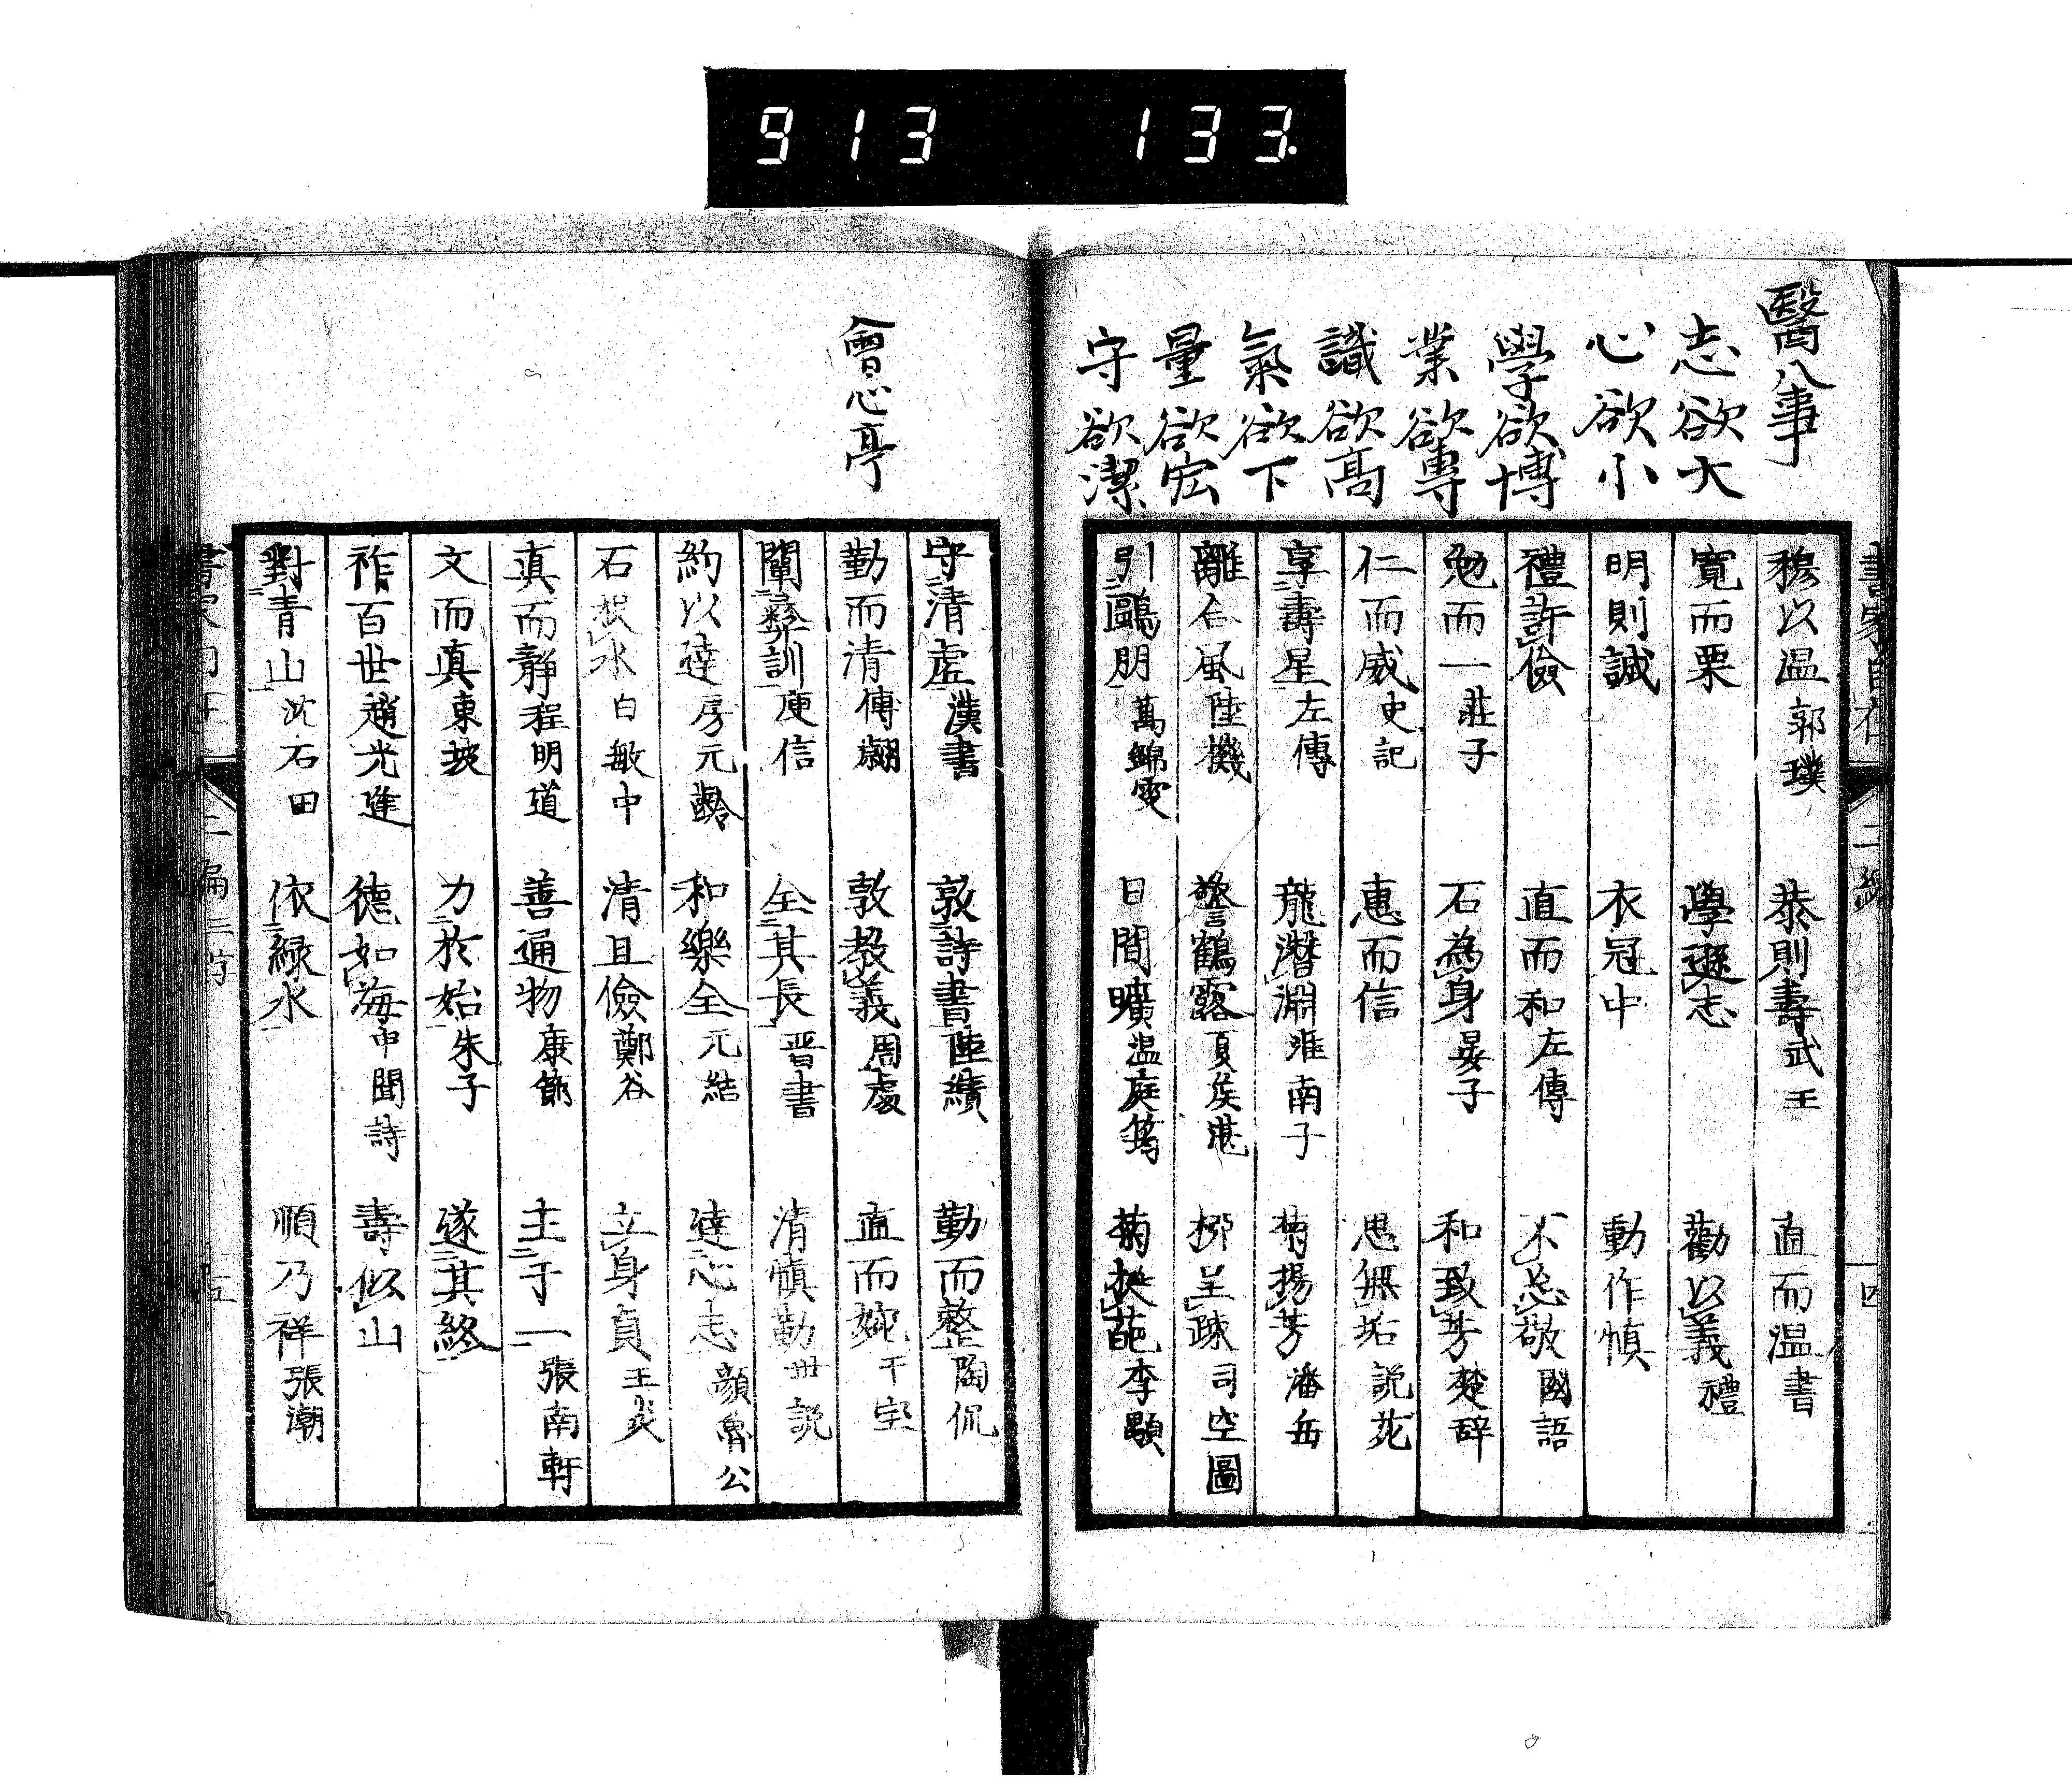 913 133.
醫八事
志欲大
心欲小
學欲博
業欲專
識欲高
氣欲下
量欲宏
守欲潔
穆以温 郭璞 恭則壽 武王 直而温 書
寛而栗 學遜志 勸以義 禮
明則誠 衣冠中 動作慎
禮許儉 直而和 左傳 不忘敬 國語
勉而一 莊子 石為身 晏子 和致芳 楚辞
仁而威 史記 惠而信 思無垢 説苑
享壽星 左傳 龍潛淵 淮南子 菊揚芳 潘岳
離合風 陸機 警鶴露 夏侯湛 柳呈疎 司空圖
引鷗朋 萬錦雯 日間曠 温庭筠 菊挾葩 李顒
二編
四
會心亭
守清虚 漢書 敦詩書 陸績 勤而整 陶侃
勤而清 傅翽 敦教義 周處 直而婉 干宝
闡彝訓 庾信 全其長 晋書 清慎勤 世説
約以達 房元齡 和樂全 元結 達心志 顔魯公
石投水 白敏中 清且儉 鄭谷 立身貞 王炎
真而静 程明道 善通物 康節 主于一 張南軒
文而真 東坡 力於始 朱子 遂其終
祚百世 趙光進 德如海 申聞詩 壽似山
對青山 沈石田 依緑水 順乃祥 張潮
二編 三字
五